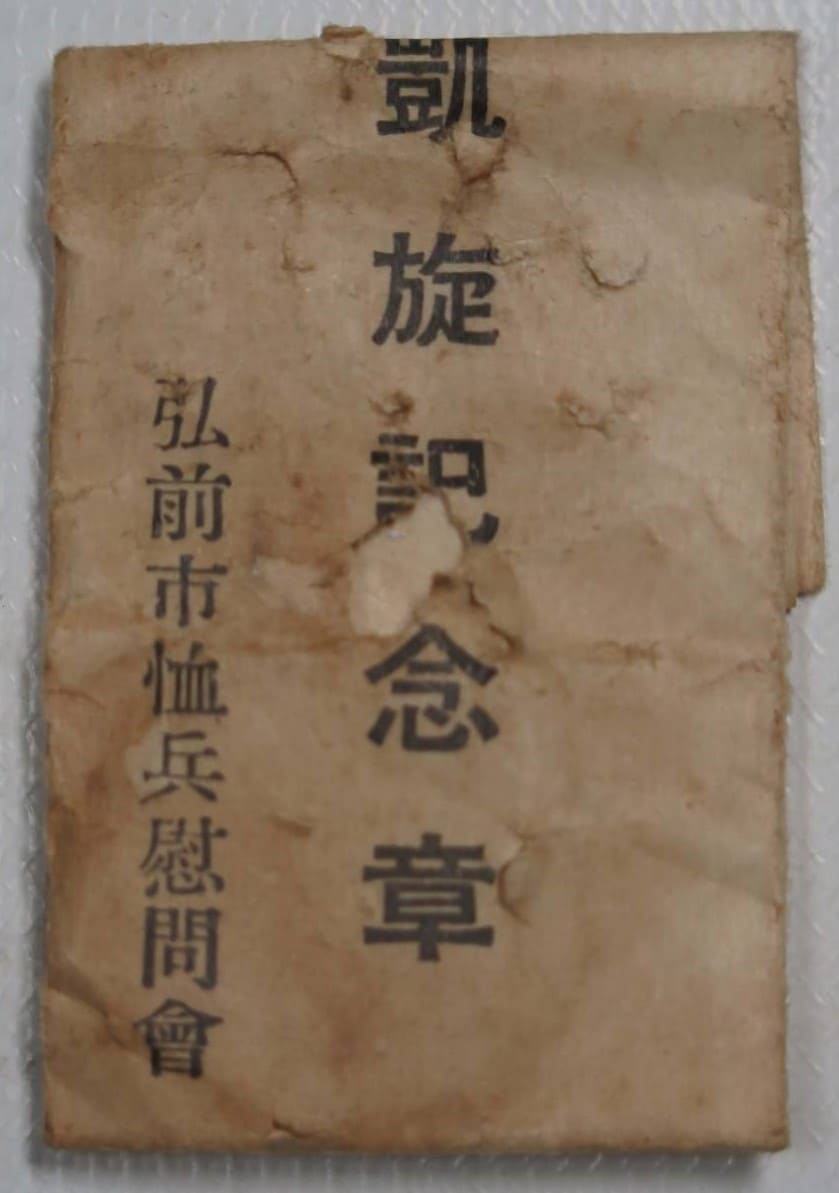 凱旋記念章
弘前市恤兵慰問會